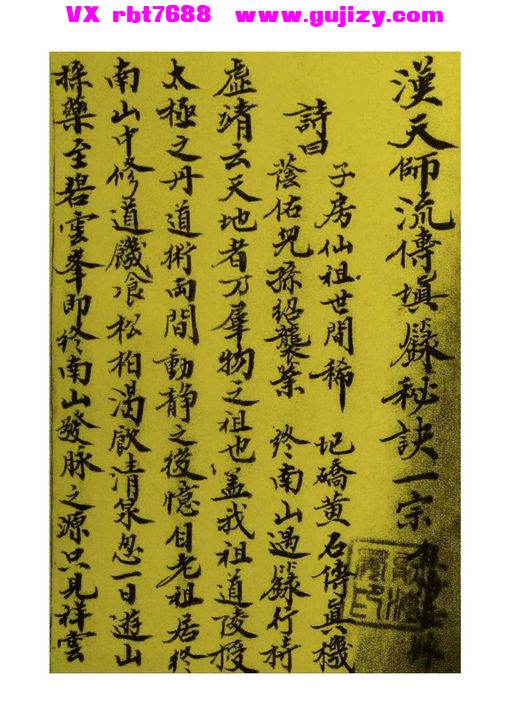 VX rbt7688 www.gujizy.com
漢天師流傳填籙秘訣一宗
詩曰
子房仙祖世間稀 圯礄黄石傳眞機
蔭佑児孫紹襲業 終南山遇籙行持
虛靖云天地者乃羣物之祖也盖我祖道陵授
太極之丹道術両間動静之後憶自老祖居終
南山中修道饑飡松柏渴飲清泉忽一日遊山
採藥至碧雲峯即終南山發脉之源只見祥雲